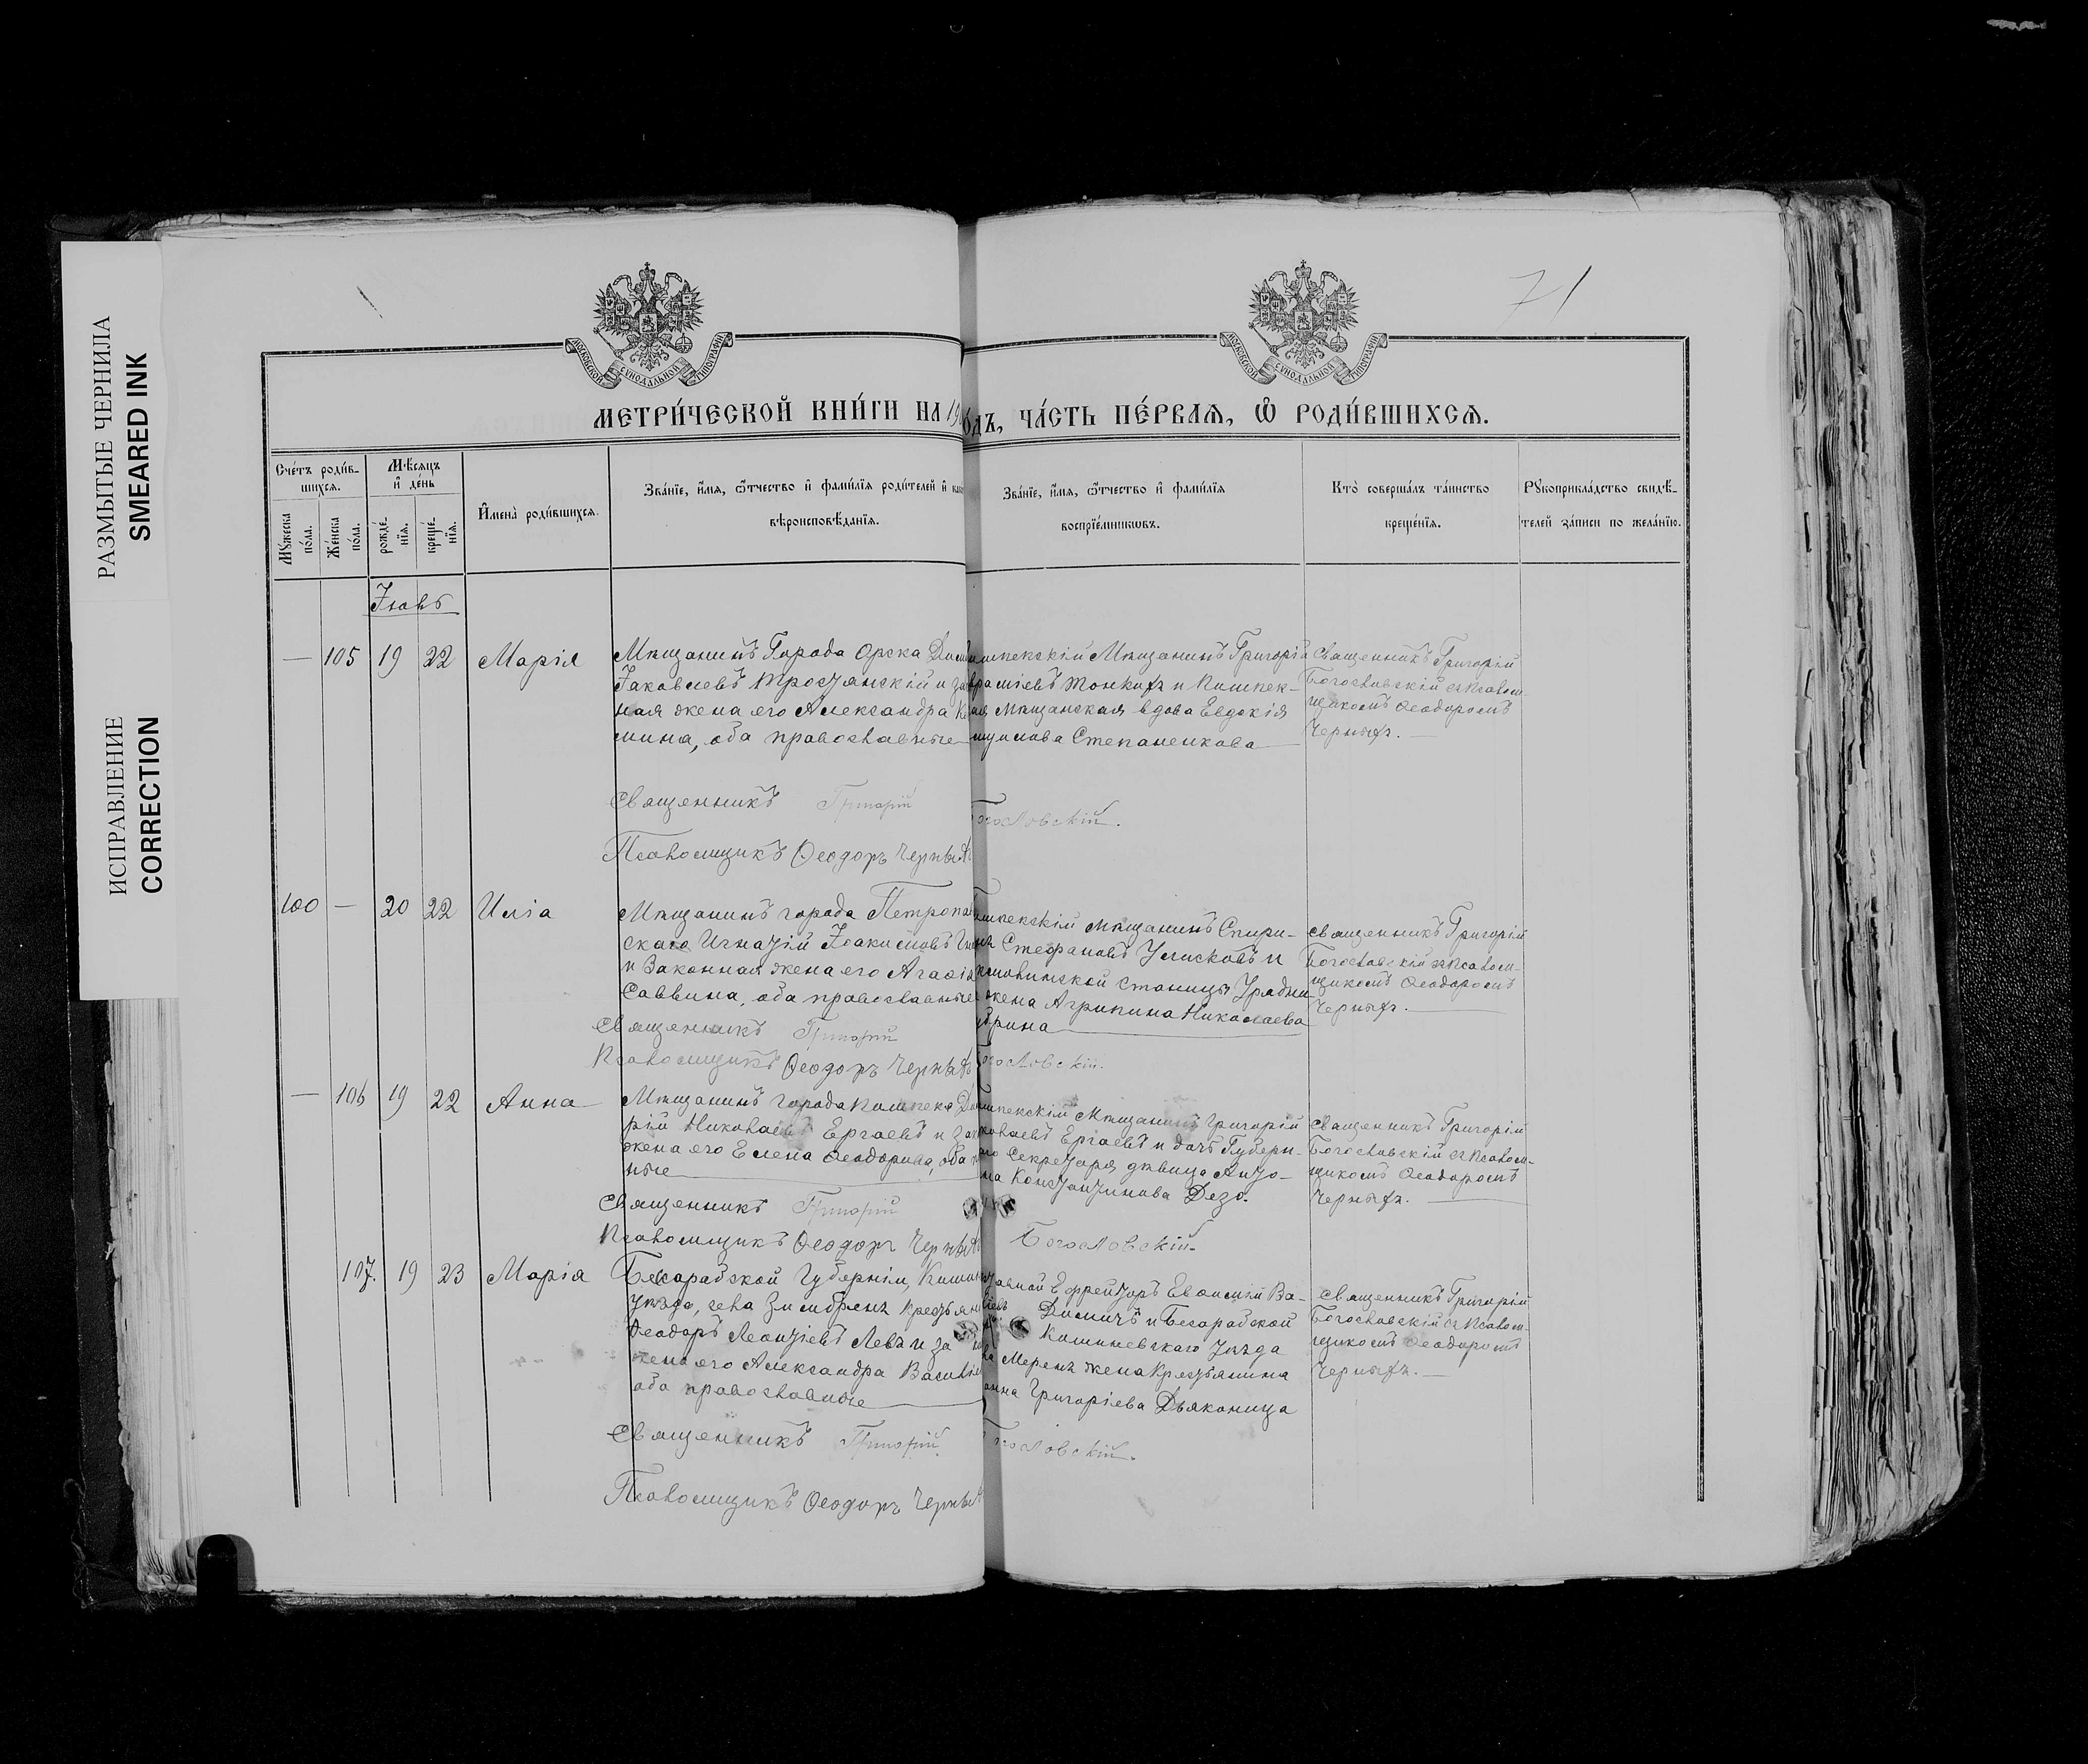 РАЗМЫТЫЕ ЧЕРНИЛА
SMEARED INK
ИСПРАВЛЕНИЕ
CORRECTION
71
МОСКОВСКОЙ СУНОДАЛЬНОЙ ТИПОГРАФІИ
МОСКОВСКОЙ СУНОДАЛЬНОЙ ТИПОГРАФІИ
МЕТРИ́ЧЕСКОЙ КНИ́ГИ НА 19
ОДЪ, ЧА́СТЬ ПЕ́РВАЯ, Ѡ РОДИ́ВШИХСЯ.
Сче́тъ роди́вшихся.
Му́жеска по́ла.
Же́нска по́ла.
Мѣ́сяцъ и де́нь
рожде́нія.
креще́нія.
Имена̀ роди́вшихся.
Зва́ніе, и́мя, ѻ́тчество и фами́лія роди́телей и
вѣроисповѣ́данія.
Зва́ніе, и́мя, ѻ́тчество и фами́лія
воспріе́мниковъ.
Кто̀ соверша́лъ та́инство
креще́нія.
Рукоприкла́дство свидѣ́телей за́писи по жела́нію.
— 105 19 22 Марія
Мѣщанинъ Города Орска
Іаковлевъ Тросянскій и
ная жена его Александра
мина, оба православные
шпекскій Мѣщанинъ Григорій
Тонкихъ и Пишпек-
Мѣщанская вдова Евдокія
Степаненкова
Священникъ Григорій
Богословскій съ Псалом-
щикомъ Ѳеодоромъ
Черныхъ.
Священникъ Григорій
Богословскій.
Псаломщикъ Ѳеодоръ Черныхъ
100 — 20 22 Илія
Мѣщанинъ города Петропав
скаго Игнатій Іоакимовъ
и Законная жена его Агафія
Саввина, оба православные
шпекскій мѣщанинъ Спири-
Стефановъ и
станицы Урядни
жена Агрипина Николаева
Священникъ Григорій
Богословскій съ Псалом-
щикомъ Ѳеодоромъ
Черныхъ.
Священникъ Григорій
Богословскій.
Псаломщикъ Ѳеодоръ Черныхъ
— 106 19 22 Анна
Мѣщанинъ города Пишпека
рій Николаевъ Ергаевъ и
жена его Елена Ѳеодорова, оба
ные
шпекскій Мѣщанинъ Григорій
колаевъ Ергаевъ и дочь Губерн-
Секретаря дѣвица Анто-
на Константинова Дезо.
Священникъ Григорій
Богословскій съ Псалом-
щикомъ Ѳеодоромъ
Черныхъ.
Священникъ Григорій
Псаломщикъ Ѳеодоръ Черныхъ
Богословскій.
107. 19 23 Марія
Бесарабской Губерніи, Кишин
уѣзда, села Зимбрень крестьянин
Ѳеодоръ Леонтіевъ Левъ и за
жена его Александра Василіев
оба православные
Ефрейторъ Евфимій Ва-
Димичъ и Бесарабской
Кишиневскаго уѣзда
Меренъ жена крестьянина
Григоріева Дьяконица
Священникъ Григорій
Богословскій съ Псалом-
щикомъ Ѳеодоромъ
Черныхъ.
Священникъ Григорій
Богословскій.
Псаломщикъ Ѳеодоръ Черныхъ